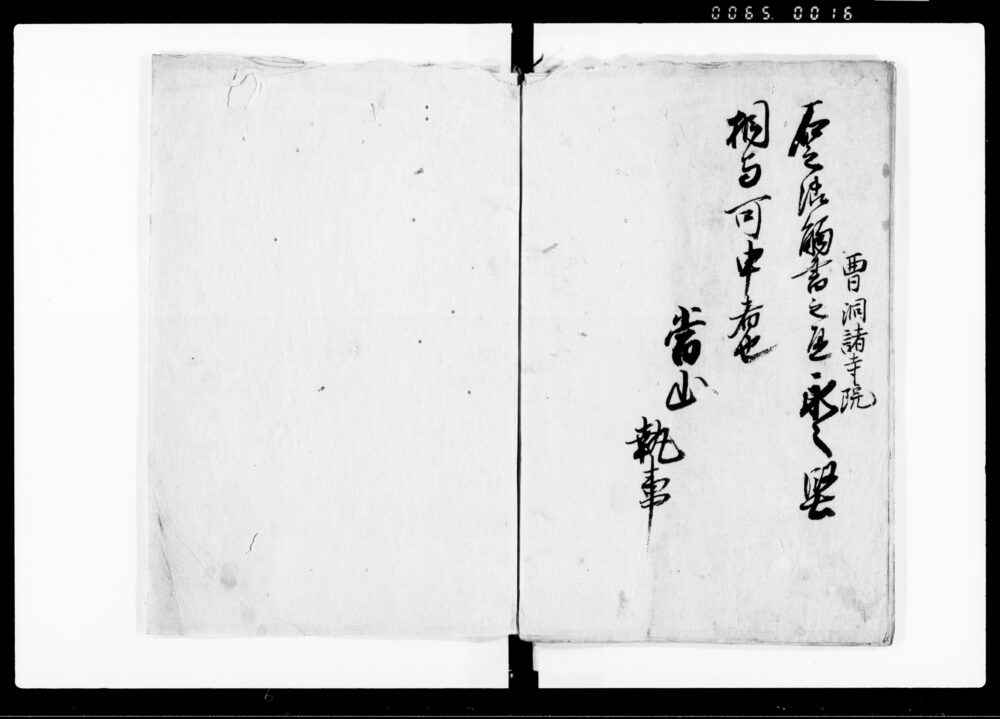 0065. 0016
曹洞諸寺院
右之法觸書之亘永々堅
相守可申者也
當山
執事